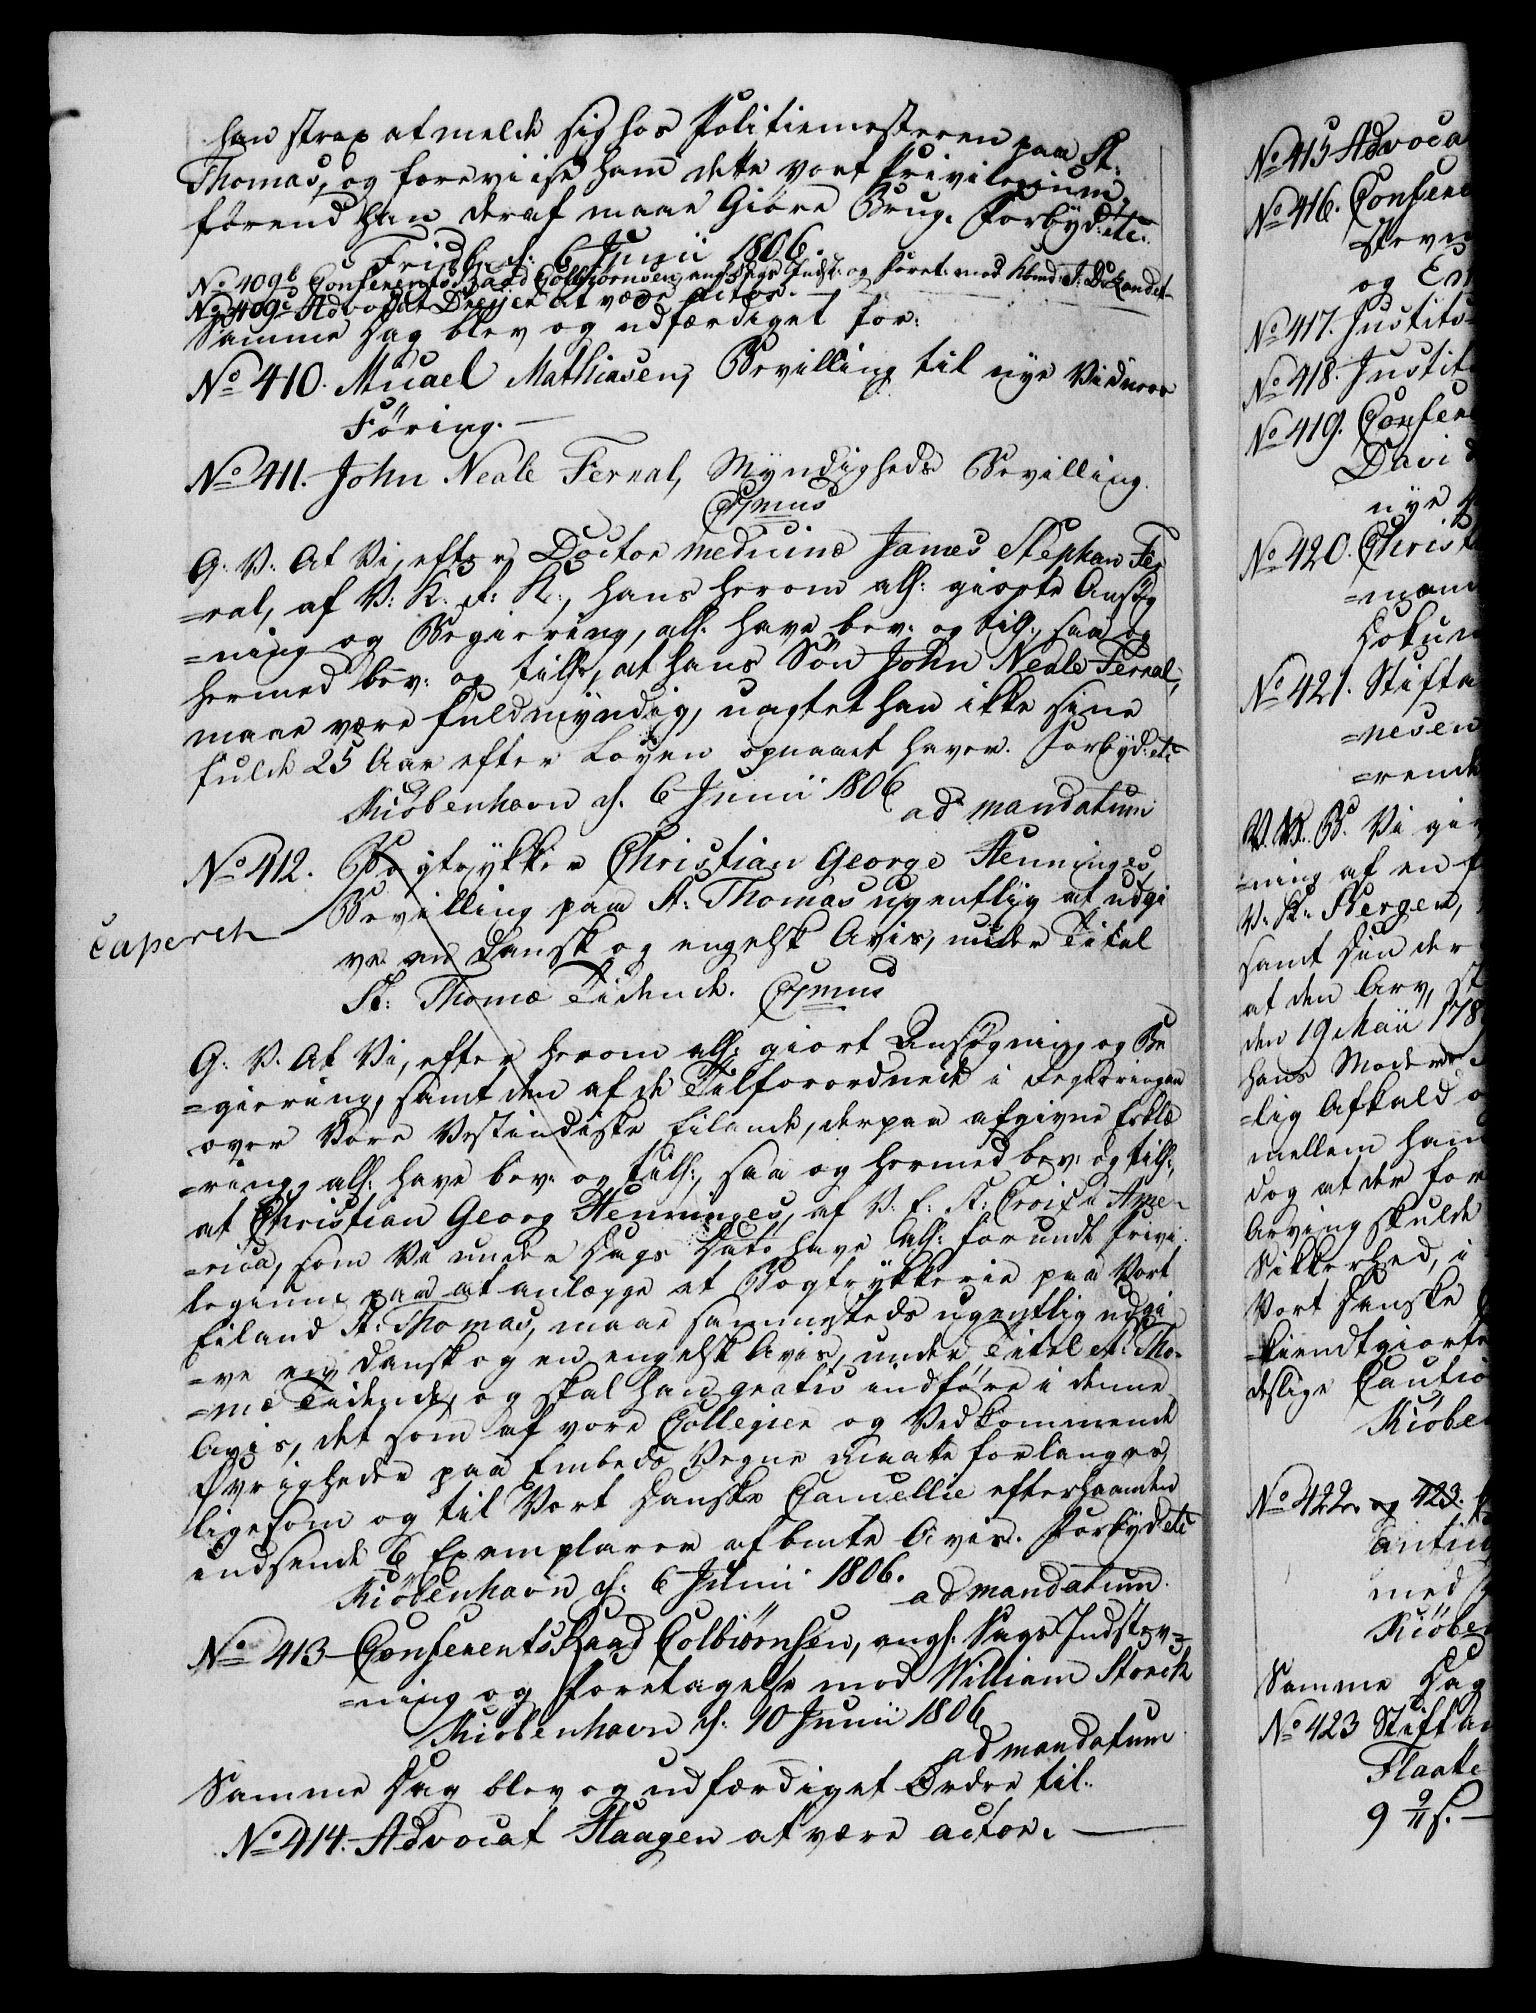 han strax at melde sig hos Politiemesteren paa St:
Thomas, og foreviise ham dette vort Privilegium,
förend han deraf maae Giöre Brug. Forbyd: etc:
Fridbg. d: 6 Junii 1806.
No 409b Conferentsraad Colbiörnsen, angl. Sags Indst: og Foret: mod
No 409c Advocat Dreyer at være actor. —
Samme Dag blev og udfærdiget for:
No 410. Micael Mathiasen, Bevilling til nye Vidners
Föring. —
No 411. John Neale Ferral, Myndigheds Bevilling.
Cpmus
G. V. At Vi, efter Doctor medicinæ James Stephan Fer
=ral, af V: K. F: K., hans herom all: giorte Ansög
=ning og Begiering, all: have bev: og till:, saa og
hermed bev: og till:, at hans Sön John Neale Ferral,
maae være fuldmyndig, uagtet han ikke sine
fulde 25 Aar efter Loven opnaaet haver. Forbyd: etc
Kiöbenhavn d. 6 Junii 1806
ad mandatum
No 412. Bogtrykker Christian George Henninges,
Bevilling paa St: Thomas ugentlig at udgi
ve en dansk og engelsk Avis, under Titel
St: Thomæ Tidende. Cpmus
G. V. At Vi, efter herom all: giort Ansögning og Be
=giering, samt den af de Tilforordnede i Regieringen
over Vore Vestindiske Eilande, derpaa afgivne Erklæ
=ring, all: have bev: og till:, saa og hermed bev: og till:,
at Christian Georg Henninges, af V. E. St: Croix i Ame-
=rica, som Vi under Dags Dato have all: forundt Privi
legium paa at anlægge et Bogtrykkerie paa Vort
Eiland St: Thomas, maae sammesteds ugentlig udgi
=ve en dansk og en engelsk Avis, under Titel St: Tho-
=mæ Tidende, og skal han gratis indföre i denne
Avis, det som af vore Collegier og Vedkommende
Övrigheder paa Embeds Vegne maatte forlanges,
ligesom og til Vort danske Cancellie efterhaanden
indsende 6 Exemplarer af bmte Avis. Forbyd: etc
Kiöbenhavn d. 6 Junii 1806.
ad mandatum.
No 413 ConferentsRaad Colbiörnsen, angl: Sags Indstev=
=ning og Foretagelse mod William Storch
Kiöbenhavn d. 10 Junii 1806
ad mandatum
Samme Dag blev og udfærdiget Ordre til:
No 414. Advocat Haagen at være actor. —
No 415 Advoca
No 416. Confere
Steven
og En
No 417. Justits=
No 418. Justits
No 419. Confere
David
nye
No 420. Christ
=man
No 421. Stifta
=nesen
=rende
V. B. Vi giv
=ning af en
V: K: Bergen,
samt
at den Arv, st
den 19 Maii 178
hans Moder
=lig Afkald o
mellem ham
dog at der for
Arving skulde
Sikkerhed, i
Vort danske
=kiendtgiorte
deslige Cautio
Kiöben
No 422. og 423.
med
Kiöben
Samme Dag
No 423 Stiftam
Flaatte